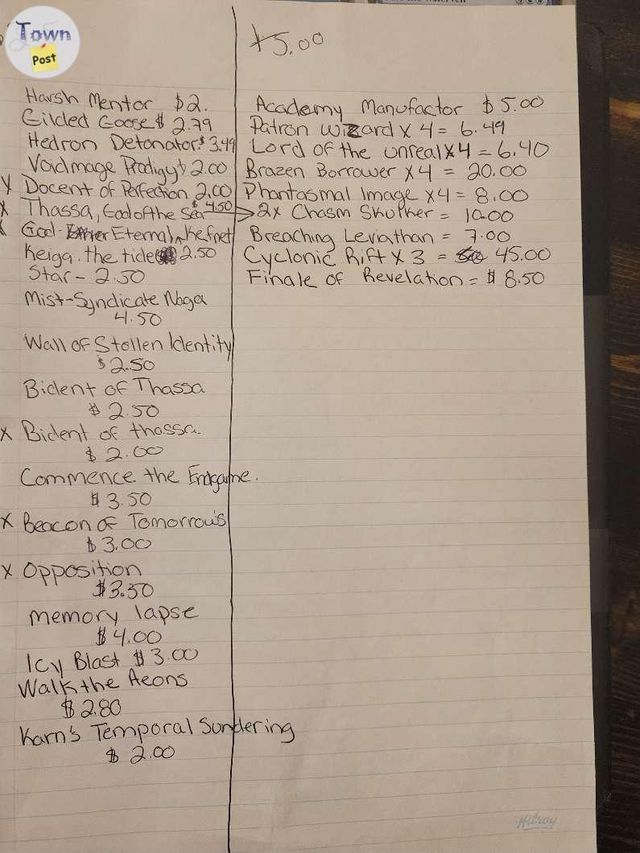 Town
Post
+5.00
Harsh Mentor $2.
Gilded Goose $ 2.79
Hedron Detonator $ 3.49
Voidmage Prodigy $ 2.00
X Docent of Perfection 2.00
X Thassa, God of the Sea $ 4.50
X God- Eternal, Kefnet
Keiga, the tide 2.50
Star - 2.50
Mist-Syndicate Naga
4.50
Wall of Stollen Identity
$ 2.50
Bident of Thassa
$ 2.50
X Bident of thassa.
$ 2.00
Commence the Endgame.
$ 3.50
X Beacon of Tomorrows
$ 3.00
X Opposition
$3.50
memory lapse
$ 4.00
Icy Blast $ 3.00
Walk the Aeons
$ 2.80
Karn's Temporal Sundering
$ 2.00
Academy Manufactor $ 5.00
Patron Wizard x 4 = 6.49
Lord of the unreal x 4 = 6.40
Brazen Borrower x 4 = 20.00
Phantasmal Image x4 = 8.00
2x Chasm Skulker = 10.00
Breaching Leviathan = 7.00
Cyclonic Rift x 3 = 45.00
Finale of Revelation = $ 8.50
Hilroy